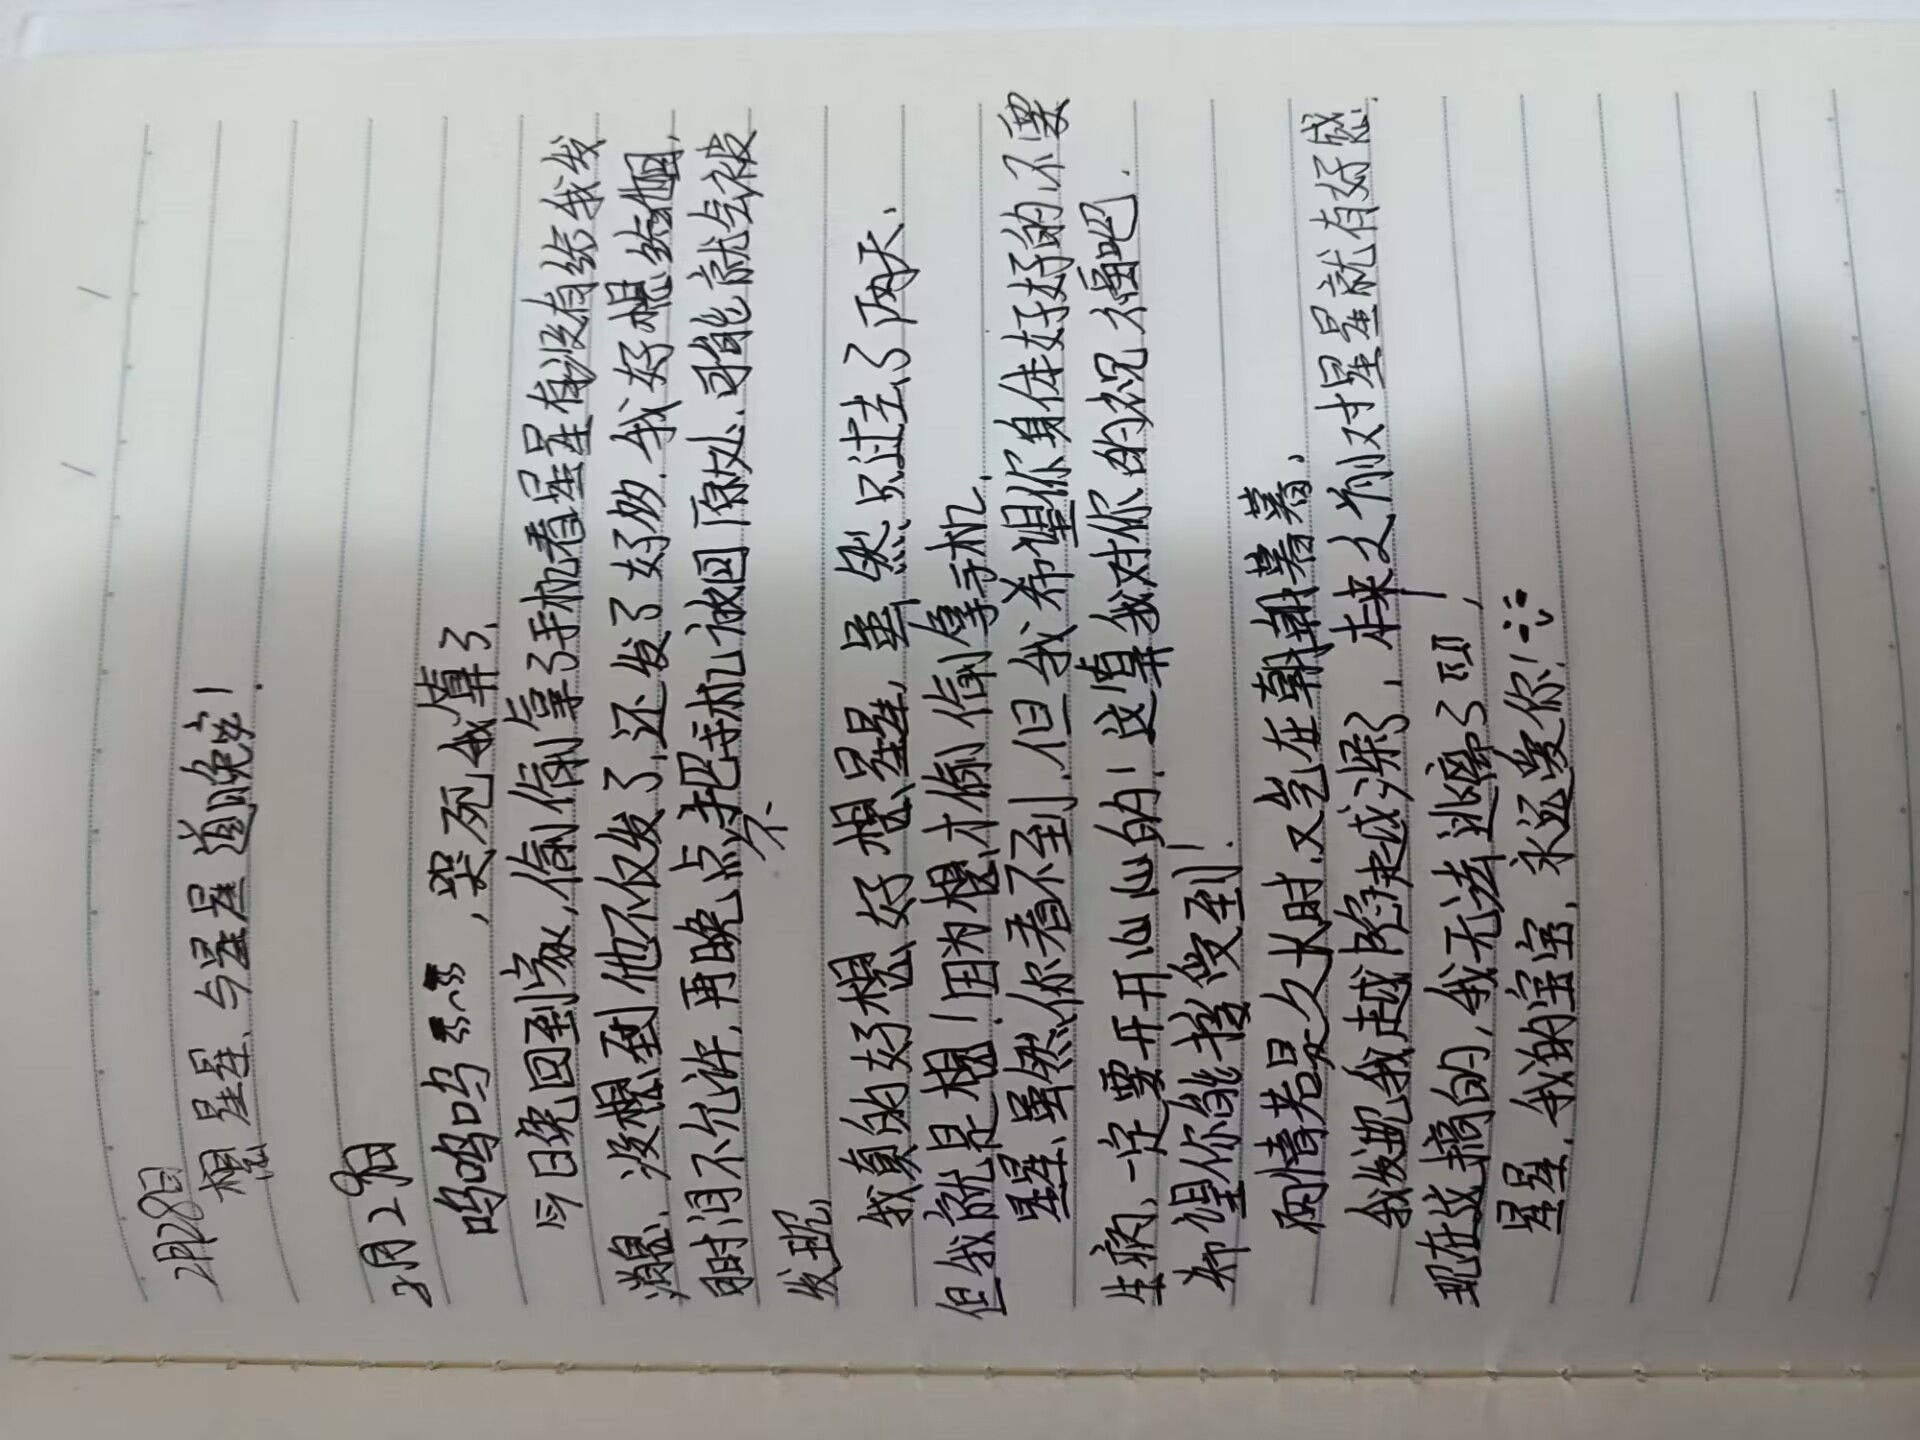 2月28日
想星星，与星星道晚安！
2月29日
呜呜呜，哭死我算了，
今日晚回到家，偷偷拿了手机看星星有没有给我发
消息，没想到他不仅发了，还发了好多，我好想给他回，
时间不允许，再晚点不把手机放回原处，可能就会被
发现，
我真的好想好想星星，虽然只过去了两天，
但我就是想！因为想才偷偷拿手机，
星星，虽然你看不到，但我希望你身体好好的，不要
生病，一定要开开心心的！这算我对你的祝福吧，
希望你能接受到！
两情若是久长时，又岂在朝朝暮暮，
我发现我越陷越深了，本来之前对星星就有好感，
现在这搞的，我无法逃离了，
星星，我的宝宝，永远爱你！